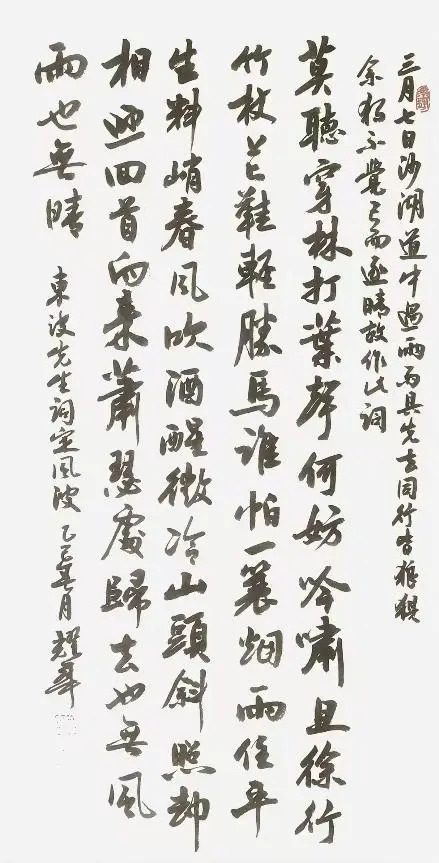 三月七日沙湖道中遇雨雨具先去同行皆狼狽
余独不覺已而遂晴故作此詞
莫聽穿林打葉聲何妨吟嘯且徐行
竹杖芒鞋輕勝馬誰怕一蓑烟雨任平
生料峭春風吹酒醒微冷山頭斜照却
相迎回首向來蕭瑟處歸去也無風
雨也無晴
東坡先生詞定風波 乙巳春月 耀